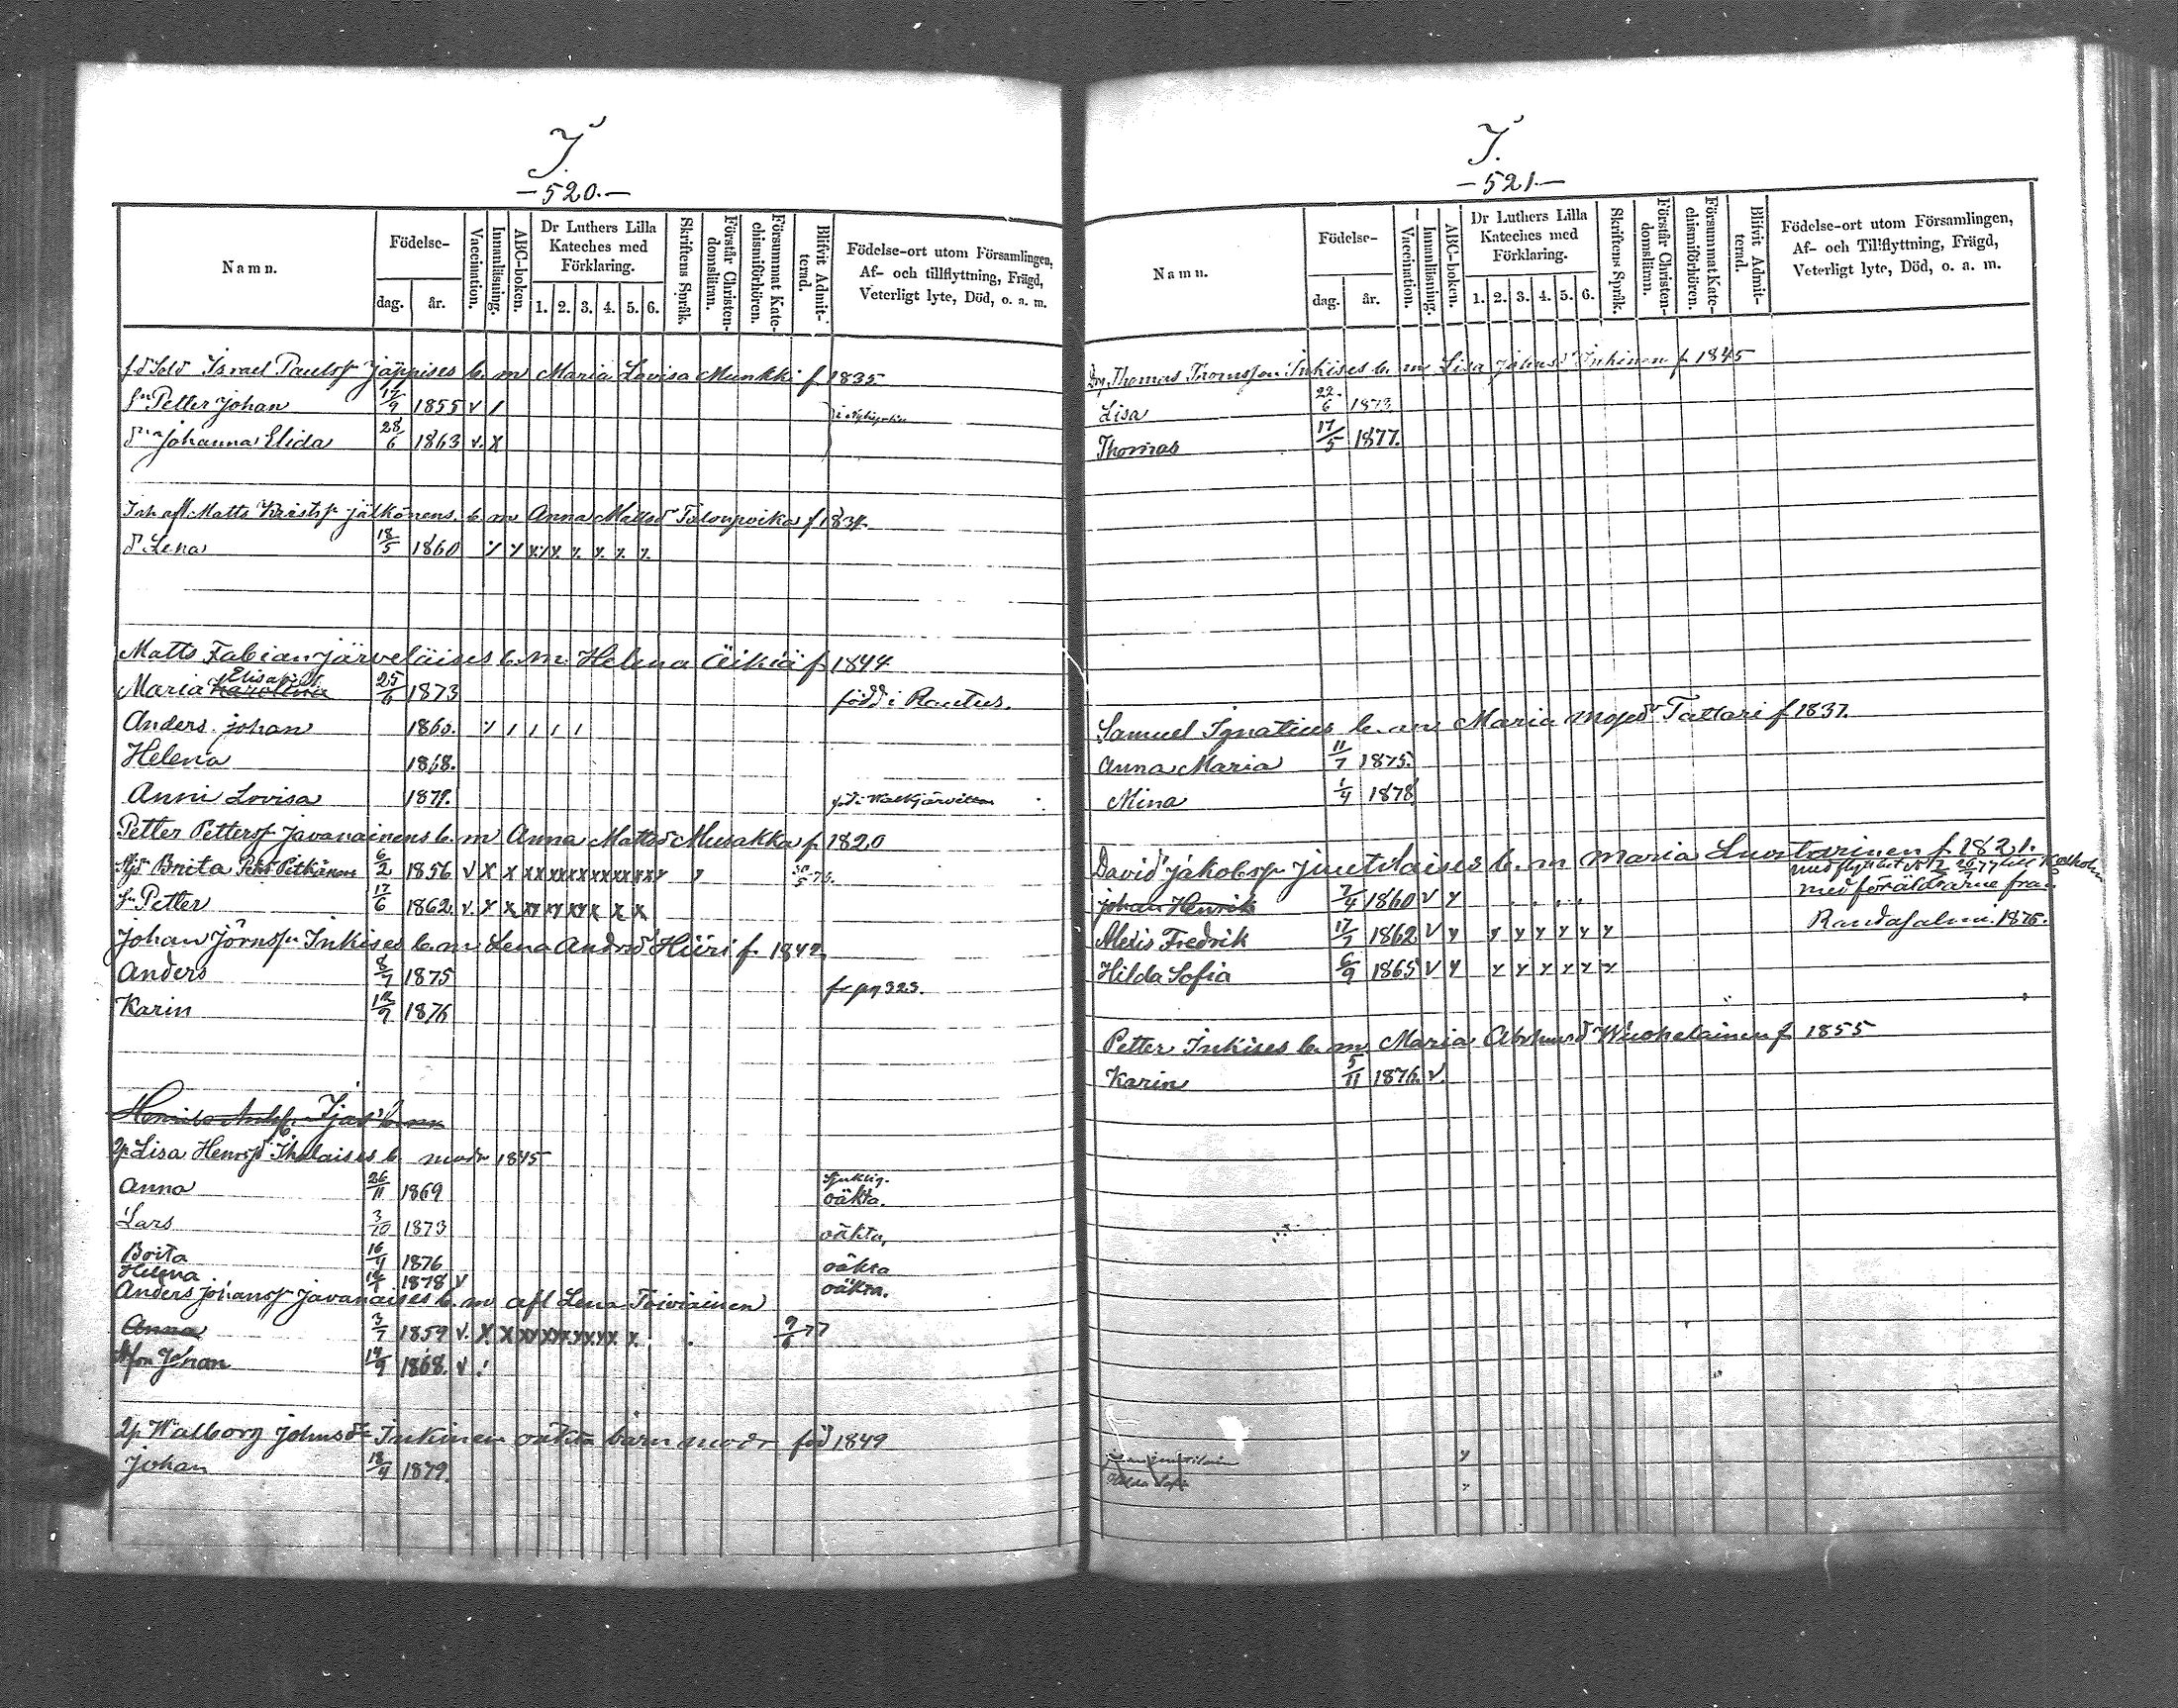 J.
—520.—
Namn.
Födelse-
dag.
år.
Vaccination.
Innanläsning.
ABC-boken.
Dr Luthers Lilla
Kateches med
Förklaring.
1. 2. 3. 4. 5. 6.
Skriftens Språk.
Förstår Christen-
domsläran.
Försummat Kate-
chismiförhören.
Blifvit Admit-
terad.
Födelse-ort utom Församlingen,
Af- och tillflyttning, Frägd,
Veterligt lyte, Död, o. a. m.
Israel Paulsp Jäppises b. m Maria Lovisa Munkki f 1835
Petter Johan 17/9 1855 v /
Johanna Elida 28/6 1863 v. x
Matts Kristsp Jälkönens b. m Anna Mattsd
d. Lena 18/5 1860
Matts Fabian Järveläises b. m. Helena Äikiä f. 1844
Maria Karolina 25/6 1873 född i Rautus.
Anders Johan 1860.
Helena 1868.
Anni Lovisa 1879.
Petter Pettersp Javanainens b. m Anna Mattsd Musakka f 1820
Brita Pitkänen 6/2 1856 v x x
Petter 17/6 1862 v. x x
Johan Jörnsp Inkises b. m. Lena Andrsd Hiiri f. 1842
Anders 8/7 1875 fr pag 323.
Karin 12/9 1876
Lisa Henrsd Ihalaises b modr 1845
Sjuklig.
Anna 26/11 1869 oäkta.
Lars 3/10 1873 oäkta,
Brita 16/11 1876 oäkta
Helena 1878 v oäkta.
Anders Johansp Javanaises b. m afl Lena Toiviainen
Anna 3/7 1859 v. x x 9/6 77
Johan 19/9 1868. v
Walborg Johnsd Inkinen oäkta barn modr föd 1849
Johan 18/4 1879.
J.
—521.—
Namn.
Födelse-
dag.
år.
Vaccination.
Innanläsning.
ABC-boken.
Dr Luthers Lilla
Kateches med
Förklaring.
1. 2. 3. 4. 5. 6.
Skriftens Språk.
Förstår Christen-
domsläran.
Försummat Kate-
chismiförhören.
Blifvit Admit-
terad.
Födelse-ort utom Församlingen,
Af- och Tillflyttning, Frägd,
Veterligt lyte, Död, o. a. m.
Thomas Thomsson Inkises b. m Lisa Johnsd Inkinen f. 1845
Lisa 22/6 1873
Thomas 17/5 1877.
Samuel Ignatius b. m Maria Mosesd Tattari f 1837.
Anna Maria 11/7 1875.
Mina 1/4 1878
David Jakobsp Juutilaises b. m Maria Luostarinen f. 1821.
Johan Henrik 7/4 1860 v y med föräldrarne från
Alexis Fredrik 17/7 1862 v y Randasalmi 1876.
Hilda Sofia 6/9 1865 v y
Petter Inkises b. m. Maria Abrhmsd Wuohelainen f 1855
Karin 5/11 1876. v.